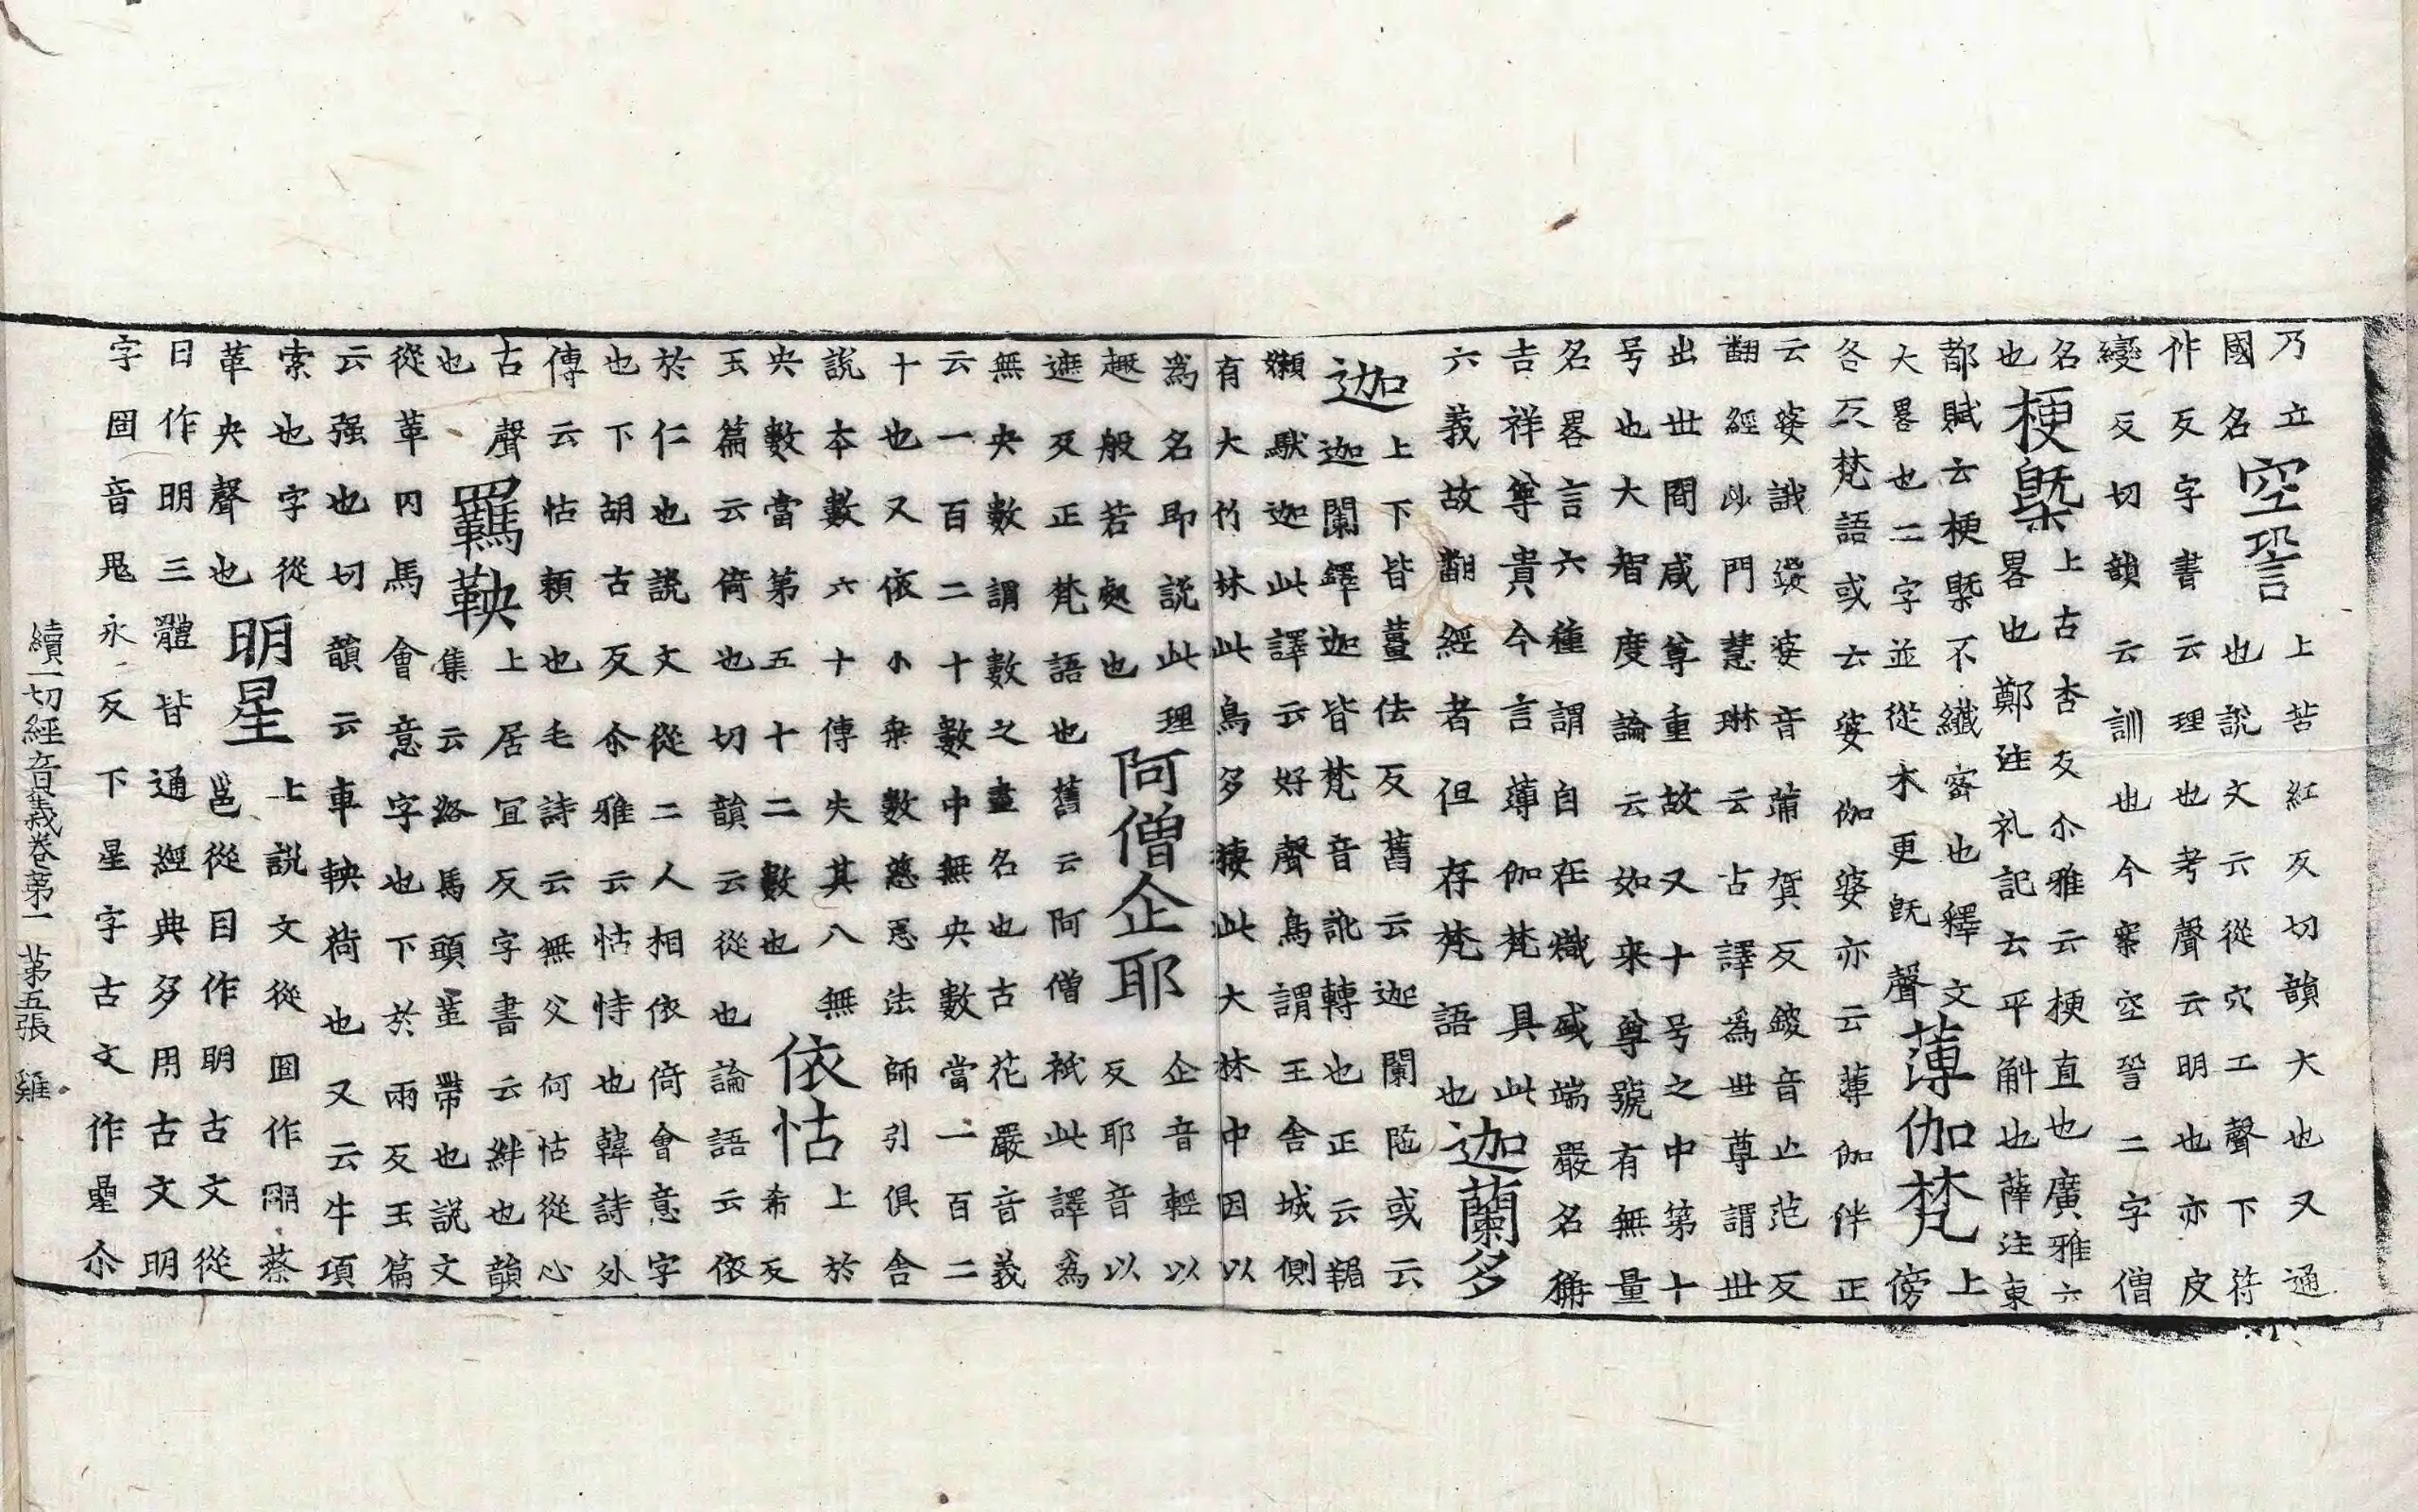 乃立
國名
空䛒
上苦紅反切韻大也又通
也説文云從穴工聲下苻
作反字書云理也考聲云明也亦皮
變反切韻云訓也今案空䛒二字僧
名
也
梗槩
上古杏反尒雅云梗直也廣雅六
畧也鄭注礼記云平斛也薛注東
都賦云梗槩不纎宻也釋文
大畧也二字並從木更旣聲
薄伽梵
上
傍
各反梵語或云婆伽婆亦云薄伽伴正
云婆誐嚩婆音蒲賀反鑁音亡范反
翻經沙門慧琳云古譯爲世尊謂世
出世間咸尊重故又十号之中第十
号也大智度論云如来尊號有無量
名畧言六種謂自在熾盛端嚴名稱
吉祥尊貴今言薄伽梵具此
六義故翻經者但存梵語也
迦蘭多
迦
上下皆薑佉反舊云迦闌陁或云
迦闌鐸迦皆梵音訛轉也正云羯
嬾馱迦此譯云好聲鳥謂王舍城側
有大竹林此鳥多棲此大林中因以
爲名即説此理
趣般若處也
阿僧企耶
企音輕以
反耶音以
遮反正梵語也舊云阿僧祇此譯爲
無央數謂數之盡名也古花嚴音義
云一百二十數中無央數當一百二
十也又依小乗數慈恩法師引俱舍
説本數六十傳失其八無
央數當第五十二數也
依怙
上於
希反
玉篇云倚也切韻云從也論語云依
於仁也説文從二人相依倚會意字
也下胡古反尒雅云怙恃也韓詩外
傳云怙頼也毛詩云無父何怙從心
古聲
也
羈鞅
上居宜反字書云絆也韻
集云絡馬頭並帶也説文
從革㓁馬會意字也下於兩反玉篇
云强也切韻云車鞅荷也又云牛項
索也字從
革央聲也
明星
上説文從囧作朙蔡
邕從目作眀古文從
日作明三體皆通經典多用古文明
字囧音鬼永反下星字古文作曐尒
續一切經音義卷第一 第五張 雞